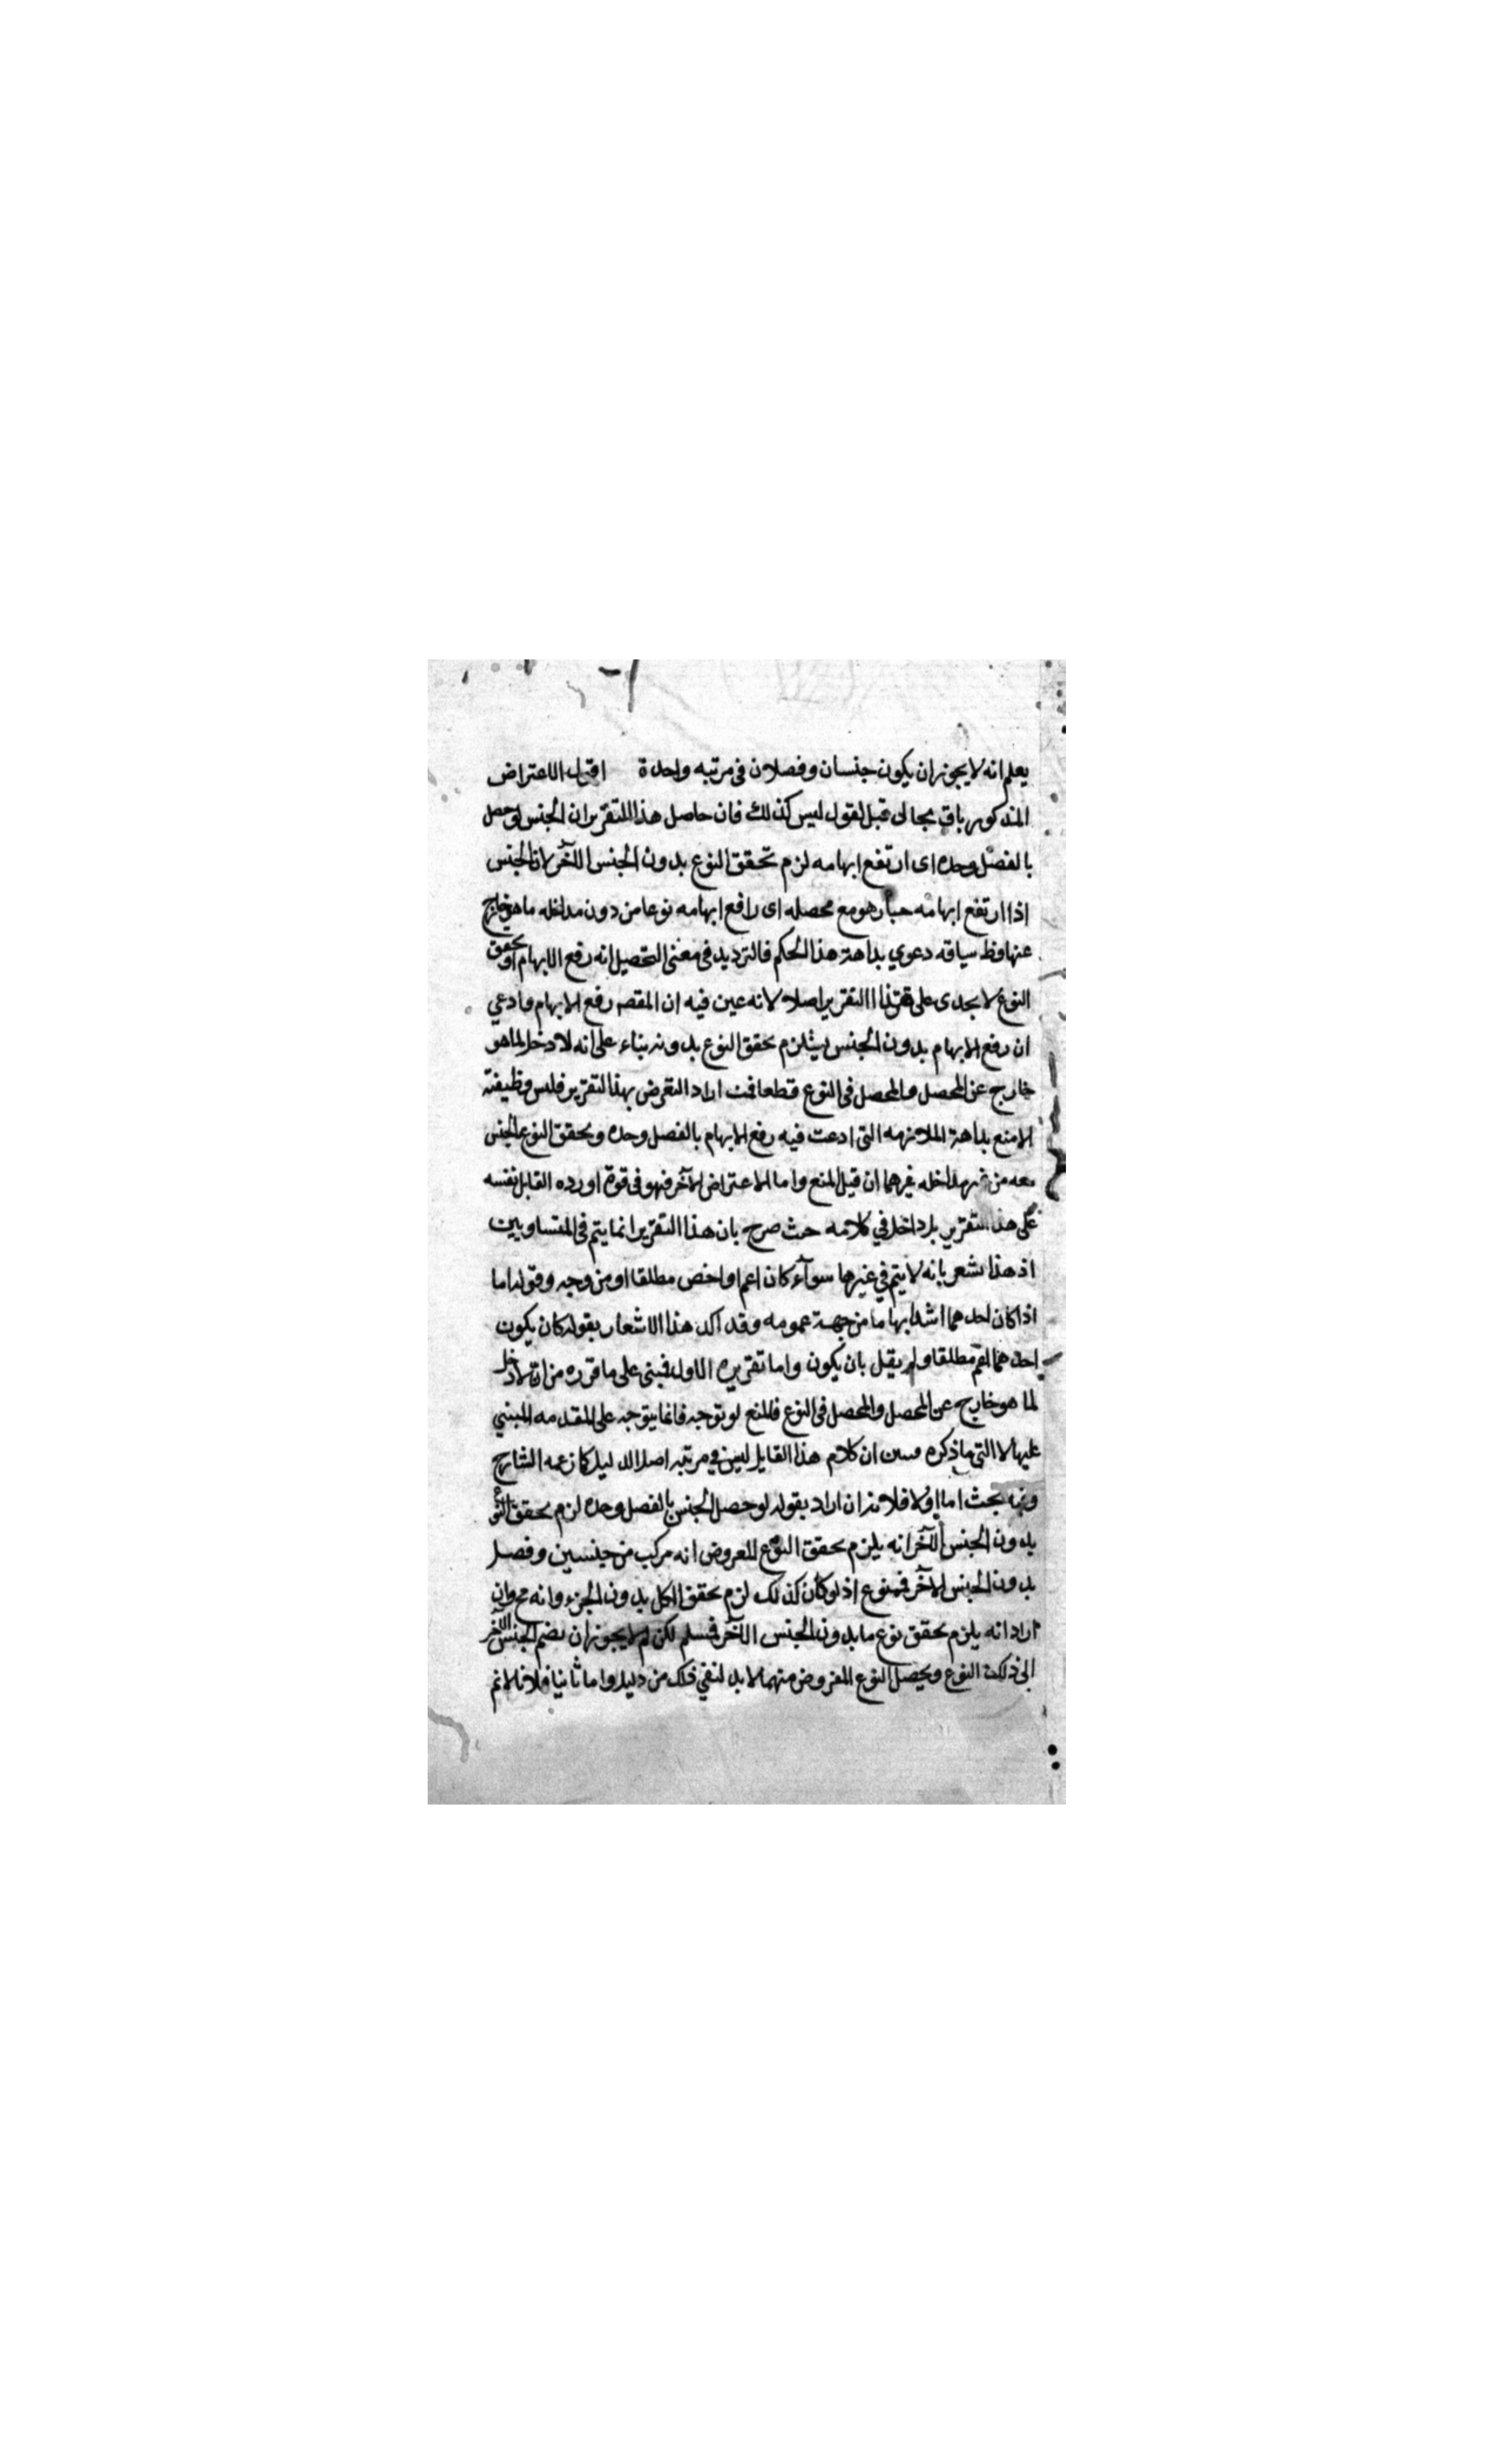 يعلم انه لا يجوز ان يكون جنسان وفصلان فى مرتبه واحدة اقول الاعتراض
المذكور باق بحاله قبل لقول ليس كذلك فان حاصل هذا التقرير ان الجنس لو حصل
بالفصل وحده اى ارتفع ابهامه لزم تحقق النوع بدون الجنس الآخر لان الجنس
اذا ارتفع ابهامه صار هو مع محصله اى رافع ابهامه نوعا من دون مداخله ما هو خارج
عنها وظ سياقه دعوي بداهة هذا الحكم فالترديد فى معنى التحصيل انه رفع الابهام او تحقق
النوع لا يجدى على هذا التقرير اصلا لانه عين فيه ان المقصه رفع الابهام وادعي
ان رفع الابهام بدون الجنس يستلزم تحقق النوع بدونه بناء على انه لا دخل لما هو
خارج عن المحصل والمحصل فى النوع قطعا فمن اراد التعرض بهذا التقرير فليس وظيفته
الا منع بداهة الملازمه التى ادعت فيه رفع الابهام بالفصل وحده وتحقق النوع الجنس
معه من غير مداخله غيرهما ان قبل المنع واما الاعتراض الآخر فهو فى قوة اورده القايل نفسه
على هذا التقرير بل داخل في كلامه حيث صرح بان هذا التقرير انما يتم فى المتساويين
اذ هذا يشعر بانه لا يتم في غيرها سوآء كان اعم او اخص مطلقا او من وجه وقوله اما
اذا كان احدهما اشد ابهاما من جهة عمومه وقد اكد هذا الاشعار بقوله كان يكون
احدهما اعم مطلقا ولم يقل بان يكون واما تقريره الاول فبنى على ما قرره من انه لا دخل
لما هو خارج عن المحصل والمحصل فى النوع فالمنع لو توجه فانما يتوجه على المقدمه المبني
عليها لا التى ما ذكره وسن ان كلام هذا القايل ليس في مرتبه اصلا الدليل كما زعمه الشارح
وفيه بحث اما اولا فلانه ان اراد بقوله لو حصل الجنس بالفصل وحده لزم تحقق النوع
بدون الجنس الآخر انه يلزم تحقق النوع المعروض انه مركب من جنسين وفصل
بدون الجنس الآخر فممنوع اذ لو كان كذلك لزم تحقق الكل بدون الجزء وانه مح وان
اراد انه يلزم تحقق نوع ما بدون الجنس الآخر فمسلم لكن لم لا يجوز ان يضم الجنس الآخر
الى ذلك النوع ويحصل النوع المفروض منهما لا بد لنفي ذلك من دليل واما ثانيا فلانا لا نم